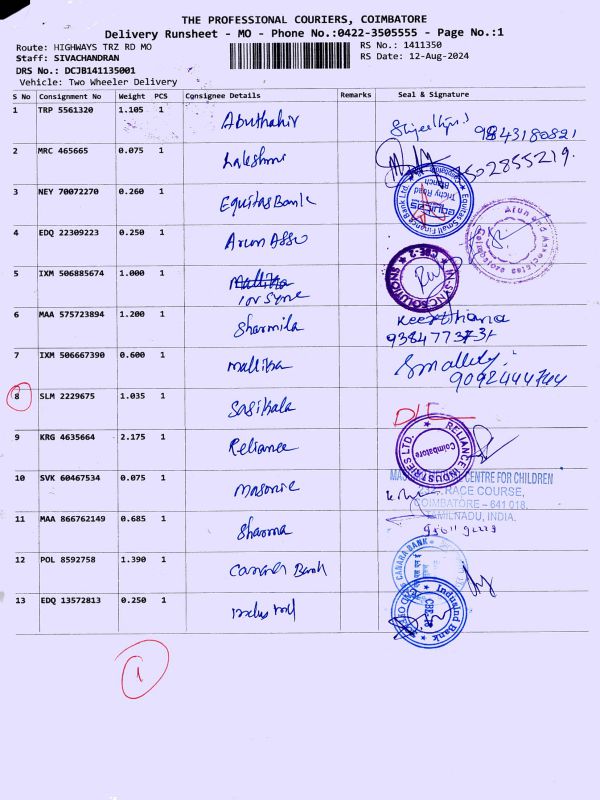 THE PROFESSIONAL COURIERS, COIMBATORE
Delivery Runsheet - MO - Phone No.:0422-3505555 - Page No.:1
Route: HIGHWAYS TRZ RD MO RS No.: 1411350
Staff: SIVACHANDRAN RS Date: 12-Aug-2024
DRS No.: DCJB141135001
Vehicle: Two Wheeler Delivery
S No Consignment No Weight PCS Consignee Details Remarks Seal & Signature
1 TRP 5561320 1.105 1 Abuthahir 9843180821
2 MRC 465665 0.075 1 Lakshmi 502855219.
3 NEY 70072270 0.260 1 Equitas Bank Equitas Small Finance Bank Ltd Trichy Road Branch
4 EDQ 22309223 0.250 1 Arun Asso Arun and Associates
5 IXM 506885674 1.000 1 Mallika IN-SYNC SOLUTIONS CBE-2
6 MAA 575723894 1.200 1 Sharmila Keerthana
9384773737
7 IXM 506667390 0.600 1 Mallika Smallity.
9092444744
8 SLM 2229675 1.035 1 Sasikala D/L
9 KRG 4635664 2.175 1 Reliance RELIANCE INDUSTRIES LTD. Coimbatore
10 SVK 60467534 0.075 1 Masonic CENTRE FOR CHILDREN
RACE COURSE,
COIMBATORE - 641 018,
TAMILNADU, INDIA.
11 MAA 866762149 0.685 1 Sharma
12 POL 8592758 1.390 1 Canara Bank CANARA BANK
13 EDQ 13572813 0.250 1 Indus Ind IndusInd Bank
1